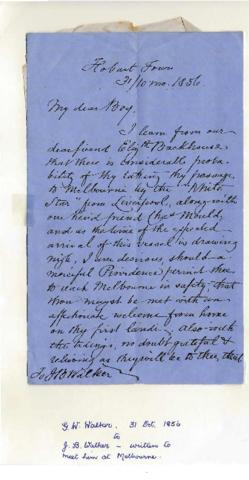 Hobart Town
31/10 mo. 1856
My dear Boy,
I learn from our
dear friend Elizth Backhouse,
that there is considerable proba-
bility of thy taking thy passage
to Melbourne by the "White
Star" from Liverpool, along with
our kind friend Chas Mould,
and as the time of the expected
arrival of this vessel is drawing
nigh, I am desirous, should a
merciful Providence permit thee
to reach Melbourne in safety, that
thou mayst be met with an
affectionate welcome from home
on thy first landing, also with
the tidings, no doubt grateful &
relieving as they will be to thee, that
To J B Walker
G. W. Walker, 31 Oct. 1856
to
J. B. Walker - written to
meet him at Melbourne.